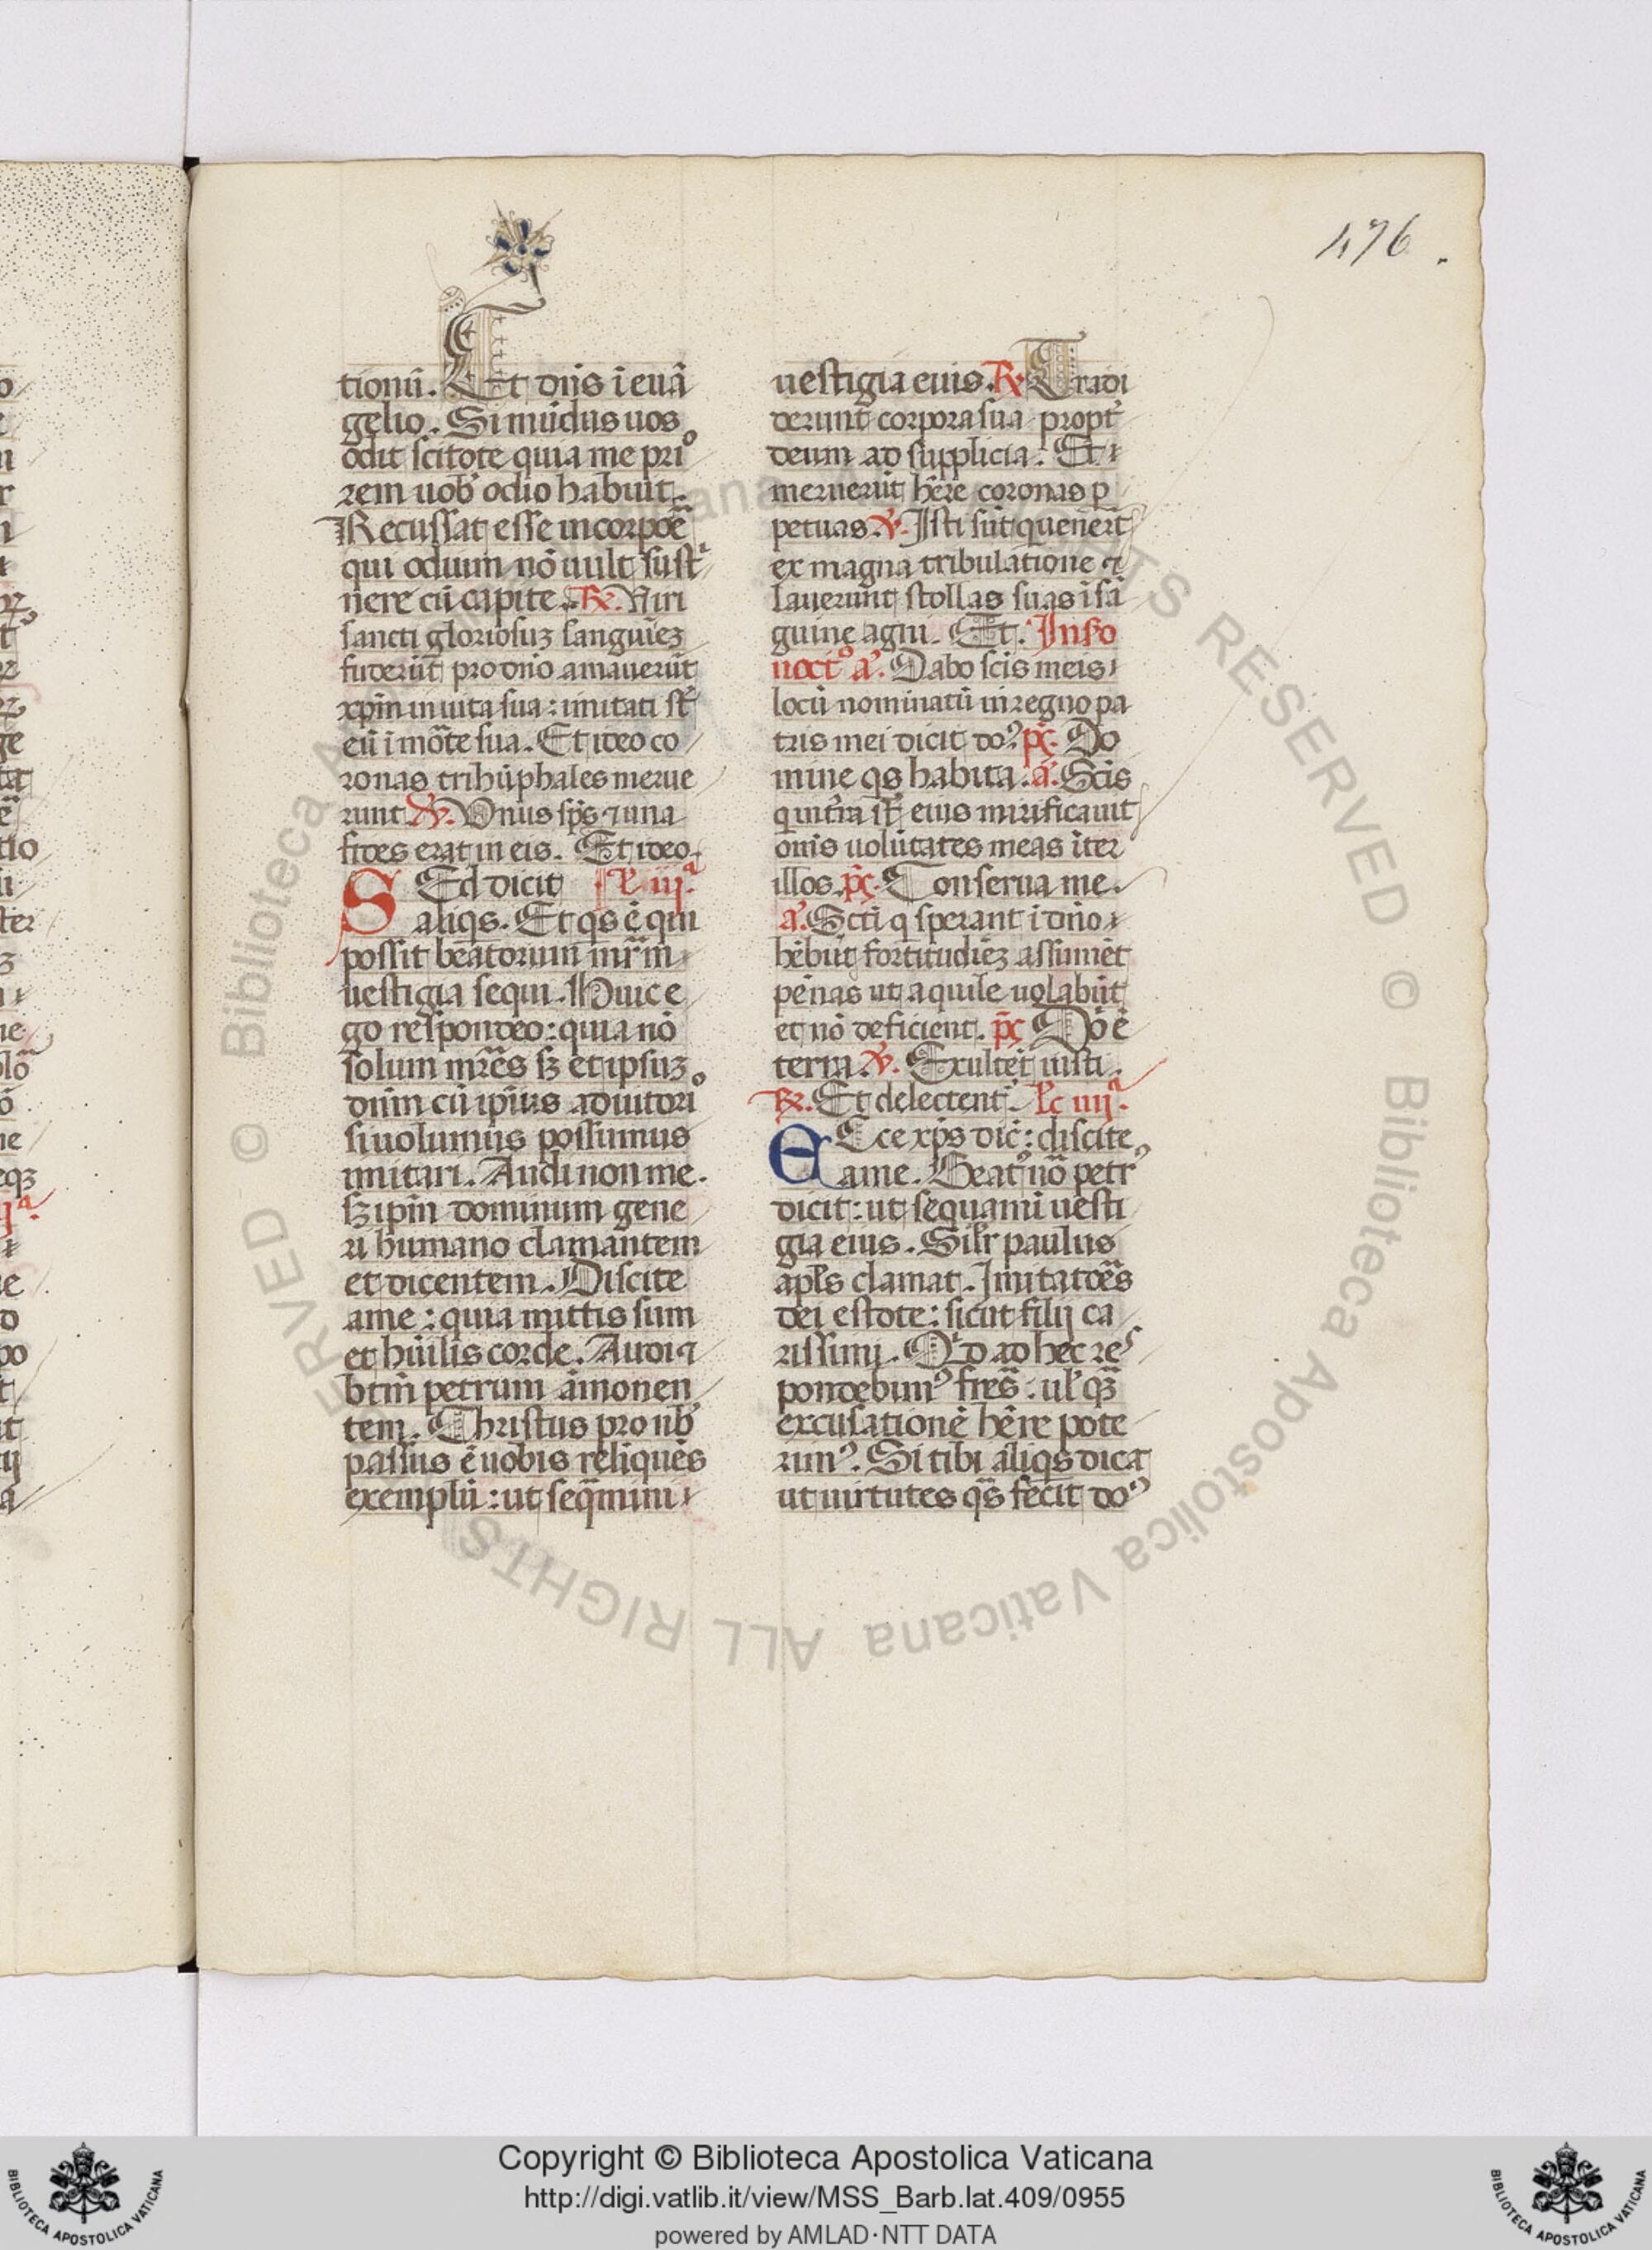 476.
tionū. Et dn̄s ī euā
gelio. Si mūdus uos
odit scitote quia me pri
orem uob' odio habuit.
Recussat esse in corpoē
qui odium nō uult susti
nere cū capite. R̷. Viri
sancti gloriosuʒ sanguīeʒ
fuderūt pro dn̄o amauerūt
xp̄m in uita sua: imitati st̄
eū ī mōte sua. Et ideo co
ronas trihūphales merue
runt. V̷. Vnus sp̄s ⁊ una
fides erat in eis. Et ideo.
SEd dicit l̄c iijᵃ.
aliqs. Et qs ē qui
possit beatorum mr̄m
uestigia sequi. Huic e
go respondeo: quia nō
solum mr̄es sʒ et ipsuʒ
dn̄m cū ip̄ius adiutorio
si uolumus possumus
imitari. Audi non me.
sʒ ip̄m dominum gene
ri humano clamantem
et dicentem. Discite
ame: quia mittis sum
et hūilis corde. Audi ⁊
btm̄ petrum āmonen
tem. Christus pro nb'
passus ē uobis reliquēs
exemplū: ut seq̄mini
uestigia eius. R̷ Tradi
derunt corpora sua propt̄
deum ad supplicia. Et
meruerūt hēre coronas p
petuas. V̷. Isti sūt qui uenerūt
ex magna tribulatione ⁊
lauerunt stollas suas ī sā
guine agni. Et. In scᵈo
noctᵒ a'. Dabo scīs meis
locū nominatū in regno pa
tris mei dicit do⁹. p̄s. Do
mine qs habita. a'. Scīs
qui ī t̄ra st̄ eius mirificauit
om̄s uolūtates meas īter
illos. p̄s. Conserua me.
a'. Scti q sperant ī dn̄o
hēbūt fortitudīeʒ assumēt
pēnas ut aquile uolabūt
et nō deficient. p̄s Dn̄i ē
terra. V̷. Exultēt iusti.
R̷. Et delectent'. l̄c iiijᵃ.
ECce xp̄s dic̄: discite
ame. Beat⁹ nō petr⁹
dicit: ut sequamī uesti
gia eius. Silr paulus
apl̄s clamat. Imitatoēs
dei estote: sicut filij ca
rissimi. Qd ad hec res
pondebim⁹ frēs: ul' qʒ
excusationē hēre pote
rim⁹. Si tibi aliqs dicat
ut uirtutes qs fecit do⁹
Copyright © Biblioteca Apostolica Vaticana
http://digi.vatlib.it/view/MSS_Barb.lat.409/0955
powered by AMLAD·NTT DATA